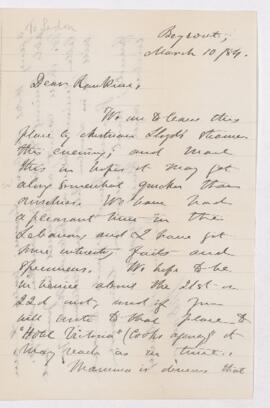 Beyrout,
March 10/84.
Dear Rankine,
We are to leave this
place by Austrian Lloyd's steamer
this evening, and mail
this in hopes it may get
along somewhat quicker than
ourselves. We have had
a pleasant time in the
Lebanon and I have got
some interesting facts and
specimens. We hope to be
in Venice about the 21st or
22d inst, and if you
will write to that place to
"Hotel Victoria" (Cooks agency) it
may reach us in time.
Mamma is desirous that